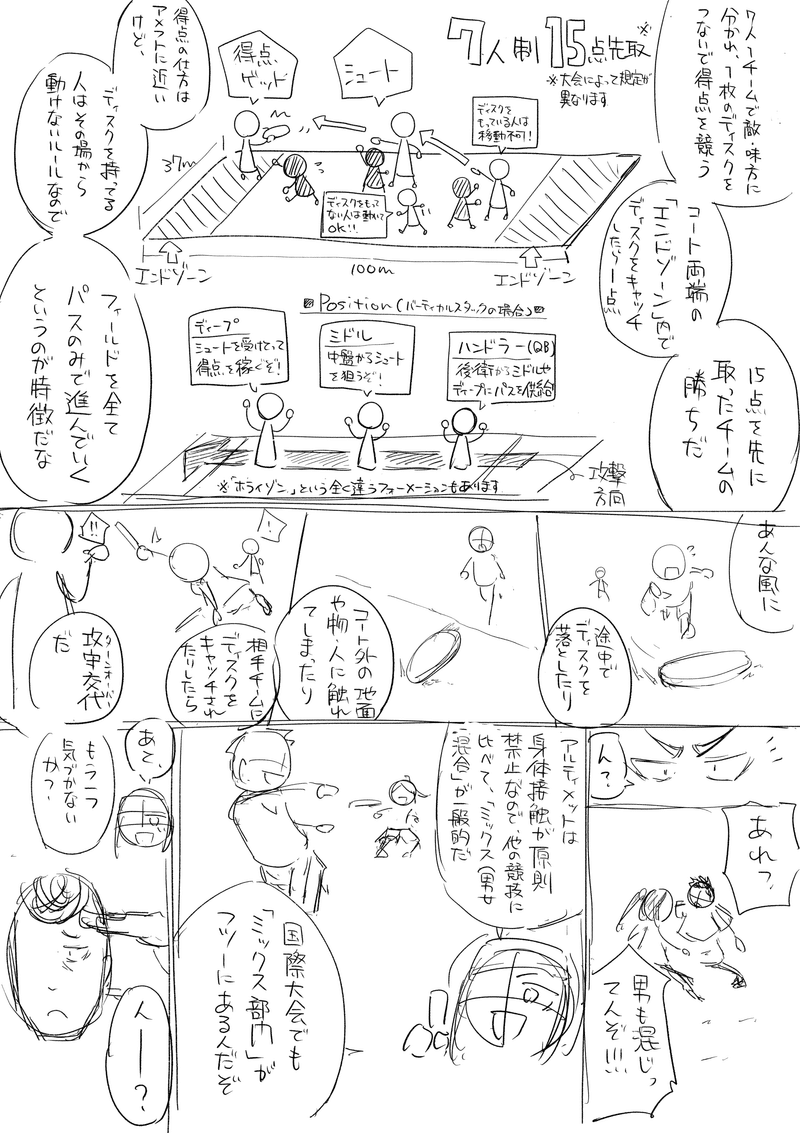 7人制15点先取※
※大会によって規定が
異なります
7人1チームで敵・味方に
分かれ、1枚のディスクを
つないで得点を競う
コート両端の
「エンドゾーン」内で
ディスクをキャッチ
したら1点
15点を先に
取ったチームの
勝ちだ
得点の仕方は
アメフトに近い
けど、
ディスクを持ってる
人はその場から
動けないルールなので
フィールドを全て
パスのみで進んでいく
というのが特徴だな
得点
ゲッド
シュート
ディスクを
もっている人は
移動不可!
ディスクをもって
ない人は動いて
OK!!
37m
エンドゾーン
100m
エンドゾーン
Position(バーティカルスタックの場合)
ディープ
シュートを受けとって
得点を稼ぐぞ!
ミドル
中盤からシュート
を狙うぞ!
ハンドラー(QB)
後衛からミドルや
ディープにパスを供給
※「ホライゾン」という全く違うフォーメーションもあります
攻撃
方向
あんな風に
途中で
ディスクを
落としたり
コート外の地面
や物・人に触れ
てしまったり
相手チームに
ディスクを
キャッチされ
たりしたら
!!
ターンオーバー
攻守交代
だ
ん?
あれっ
男も混じっ
てんぞ!!!
アルティメットは
身体接触が原則
禁止なので、他の競技に
比べて、「ミックス(男女
混合)」が一般的だ
国際大会でも
「ミックス部門」が
フツーにあるんだぞ
あと、
もう一つ
気づかない
かっ
んー?